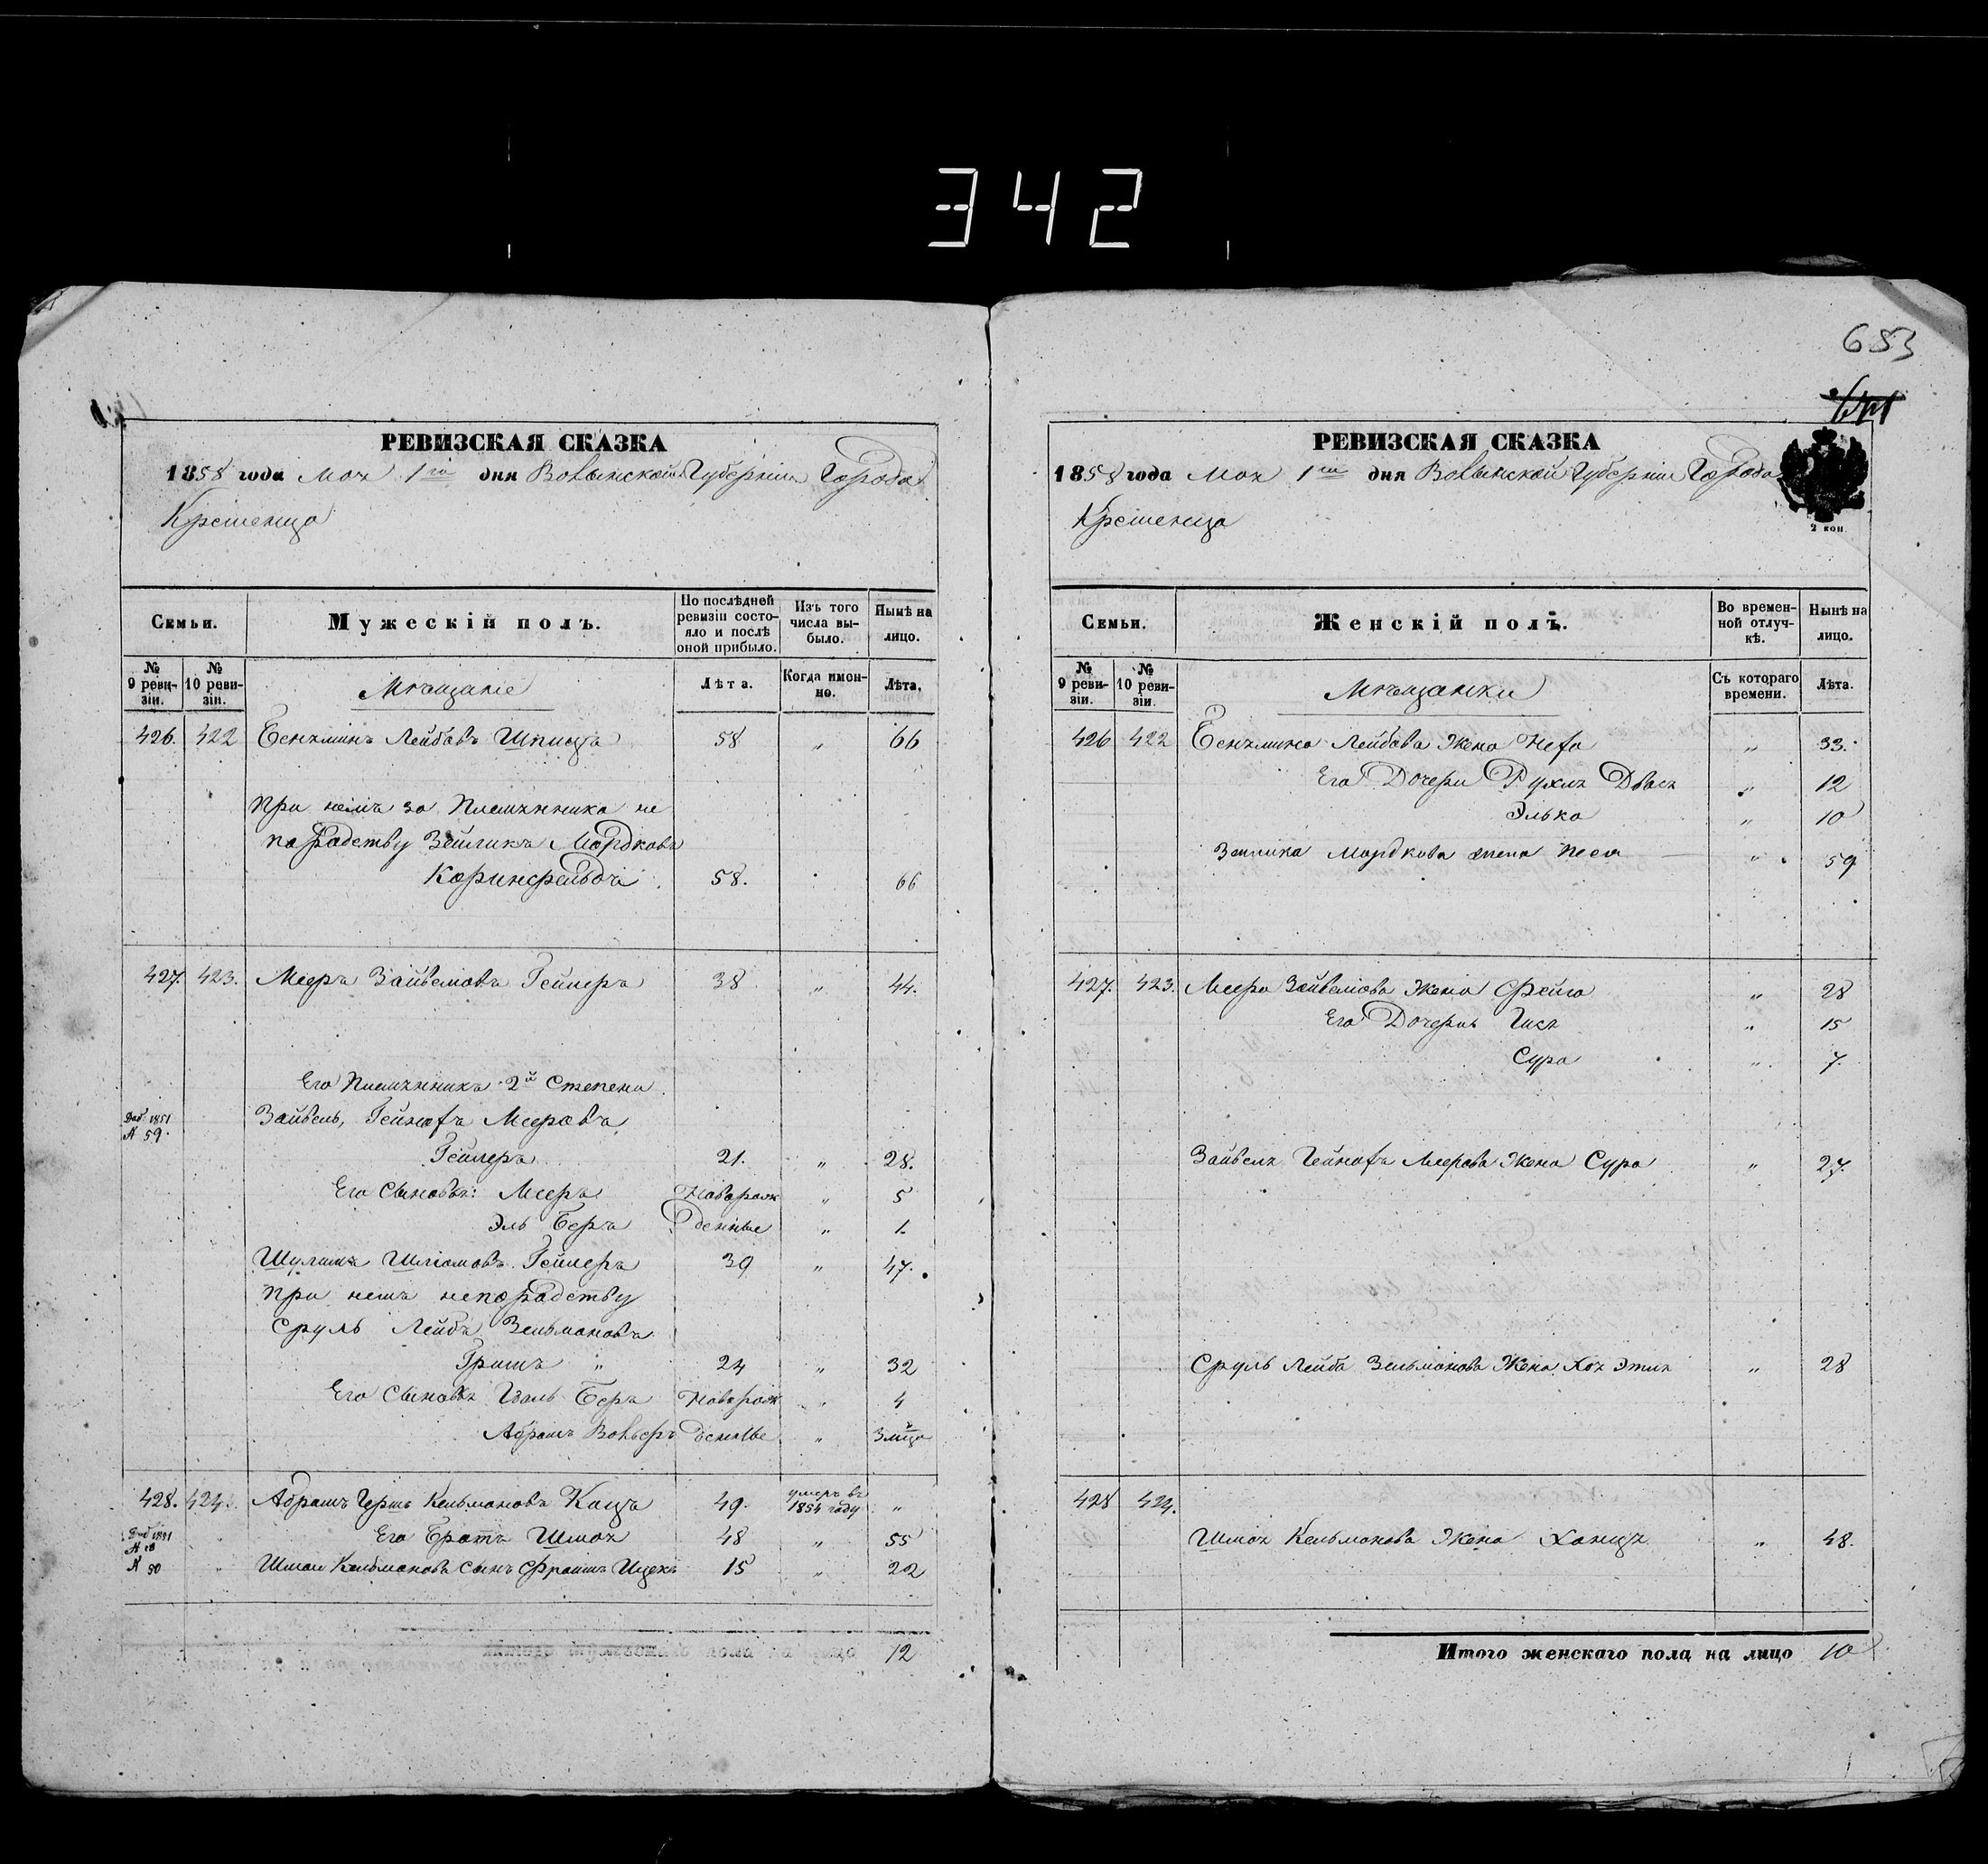 342
653
РЕВИЗСКАЯ СКАЗКА
1858 года Мая 1го дня Волынской Губерніи Города
Кременца
Семьи.
Мужескій полъ.
По послѣдней ревизіи состояло и послѣ оной прибыло.
Изъ того числа выбыло.
Нынѣ на лицо.
№ 9 ревизіи.
№ 10 ревизіи.
Мѣщане
Лѣта.
Когда именно.
Лѣта.
426. 422 Беніяминъ Лейбовъ Шпицъ 58 „ 66
При немъ за Племянника не
по родству Зейликъ Мордковъ
Коринфельдъ 58. 66
427. 423. Мееръ Зайвеловъ Гейлеръ 38 „ 44.
Его Племянникъ 2й Степени
1851 № 59.
Зайвель, Гейнохъ Мееровъ
Гейлеръ 21. „ 28.
Его Сыновья: Мееръ Новорож „ 5
Эль Беръ денные „ 1.
Шулимъ Шліомовъ Гейлеръ 39 „ 47.
При немъ непородству
Сруль Лейбъ Зельмановъ
Гришъ „ 24 „ 32
Его Сыновья Беръ Новорож „ 4
Абрамъ Вольфъ денные „ 3 мѣца
428. 424. Абрамъ Гершъ Кельмановъ Кацъ 49. умеръ въ 1854 году „
№ 18
Его Братъ Шмая 48 „ 55
№ 50
Шмаи Кельманова Сынъ Фроимъ Ицекъ 15 „ 22
12
РЕВИЗСКАЯ СКАЗКА
1858 года Мая 1го дня Волынской Губерніи Города
Кременца
2 коп.
Семьи.
Женскій полъ.
Во временной отлучкѣ.
Нынѣ на лицо.
№ 9 ревизіи.
№ 10 ревизіи.
Мѣщанки
Съ котораго времени.
Лѣта.
426 422 Беніямина Лейбова Жена Неха „ 33.
Его Дочери Рухля Двася „ 12
Элька „ 10
Зейлика Мордкова жена Песя „ 59
427. 423. Меера Зайвелова Жена Фейга „ 28
Его Дочери Гися „ 15
Сура „ 7.
Зайвеля Гейноха Меерова Жена Сура „ 27.
Сруль Лейба Зельманова Жена Хая Этля „ 28
428 424.
Шмая Кельманова Жена Ханця „ 48.
Итого женскаго пола на лицо 10